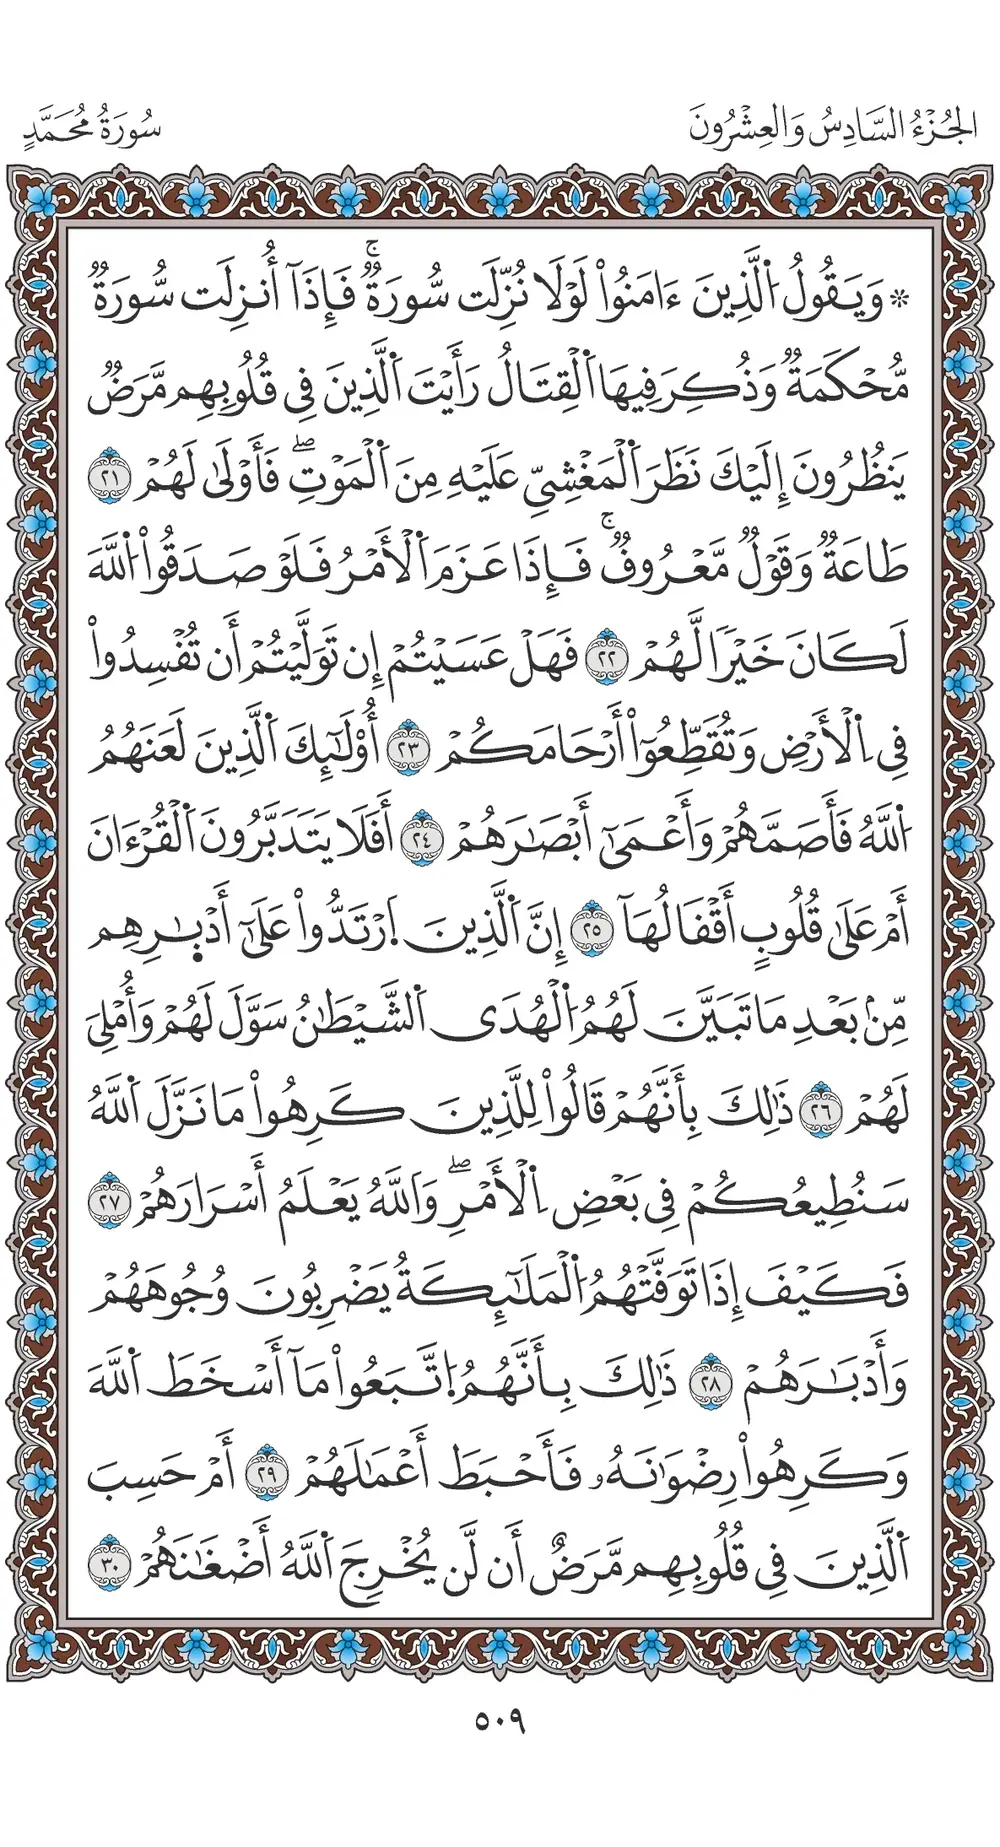 الجُزْءُ السَّادِسُ وَالعِشْرُونَ
سُورَةُ مُحَمَّدٍ
۞ وَيَقُولُ اُ۬لَّذِينَ ءَامَنُواْ لَوْلَا نُزِّلَت سُّورَةٞۚ فَإِذَآ أُنزِلَت سُّورَةٞ
مُّحْكَمَةٞ وَذُكِرَ فِيهَا اَ۬لْقِتَالُ رَأَيْتَ اَ۬لَّذِينَ فِي قُلُوبِهِم مَّرَضٞ
يَنظُرُونَ إِلَيْكَ نَظَرَ اَ۬لْمَغْشِيِّ عَلَيْهِ مِنَ اَ۬لْمَوْتِۖ فَأَوْلَىٰ لَهُمْ ٢١
طَاعَةٞ وَقَوْلٞ مَّعْرُوفٞۚ فَإِذَا عَزَمَ اَ۬لْأَمْرُ فَلَوْ صَدَقُواْ اُ۬للَّهَ
لَكَانَ خَيْرٗا لَّهُمْ ٢٢ فَهَلْ عَسَيْتُمْ إِن تَوَلَّيْتُمْ أَن تُفْسِدُواْ
فِي اِ۬لْأَرْضِ وَتُقَطِّعُوٓاْ أَرْحَامَكُمْ ٢٣ أُوْلَٰٓئِكَ اَ۬لَّذِينَ لَعَنَهُمُ
اُ۬للَّهُ فَأَصَمَّهُمْ وَأَعْمَىٰٓ أَبْصَٰرَهُمْ ٢٤ أَفَلَا يَتَدَبَّرُونَ اَ۬لْقُرْءَانَ
أَمْ عَلَىٰ قُلُوبٍ أَقْفَالُهَآ ٢٥ إِنَّ اَ۬لَّذِينَ اَ۪رْتَدُّواْ عَلَىٰٓ أَدْبٰ۪رِهِم
مِّنۢ بَعْدِ مَا تَبَيَّنَ لَهُمُ اُ۬لْهُدَى اَ۬لشَّيْطَٰنُ سَوَّلَ لَهُمْ وَأُمْلِيَ
لَهُمْ ٢٦ ذَٰلِكَ بِأَنَّهُمْ قَالُواْ لِلَّذِينَ كَرِهُواْ مَا نَزَّلَ اَ۬للَّهُ
سَنُطِيعُكُمْ فِي بَعْضِ اِ۬لْأَمْرِۖ وَاللَّهُ يَعْلَمُ أَسْرَارَهُمْ ٢٧
فَكَيْفَ إِذَا تَوَفَّتْهُمُ اُ۬لْمَلَٰٓئِكَةُ يَضْرِبُونَ وُجُوهَهُمْ
وَأَدْبَٰرَهُمْ ٢٨ ذَٰلِكَ بِأَنَّهُمُ اُ۪تَّبَعُواْ مَآ أَسْخَطَ اَ۬للَّهَ
وَكَرِهُواْ رِضْوَٰنَهُۥ فَأَحْبَطَ أَعْمَٰلَهُمْ ٢٩ أَمْ حَسِبَ
اَ۬لَّذِينَ فِي قُلُوبِهِم مَّرَضٌ أَن لَّن يُخْرِجَ اَ۬للَّهُ أَضْغَٰنَهُمْ ٣٠
٥٠٩